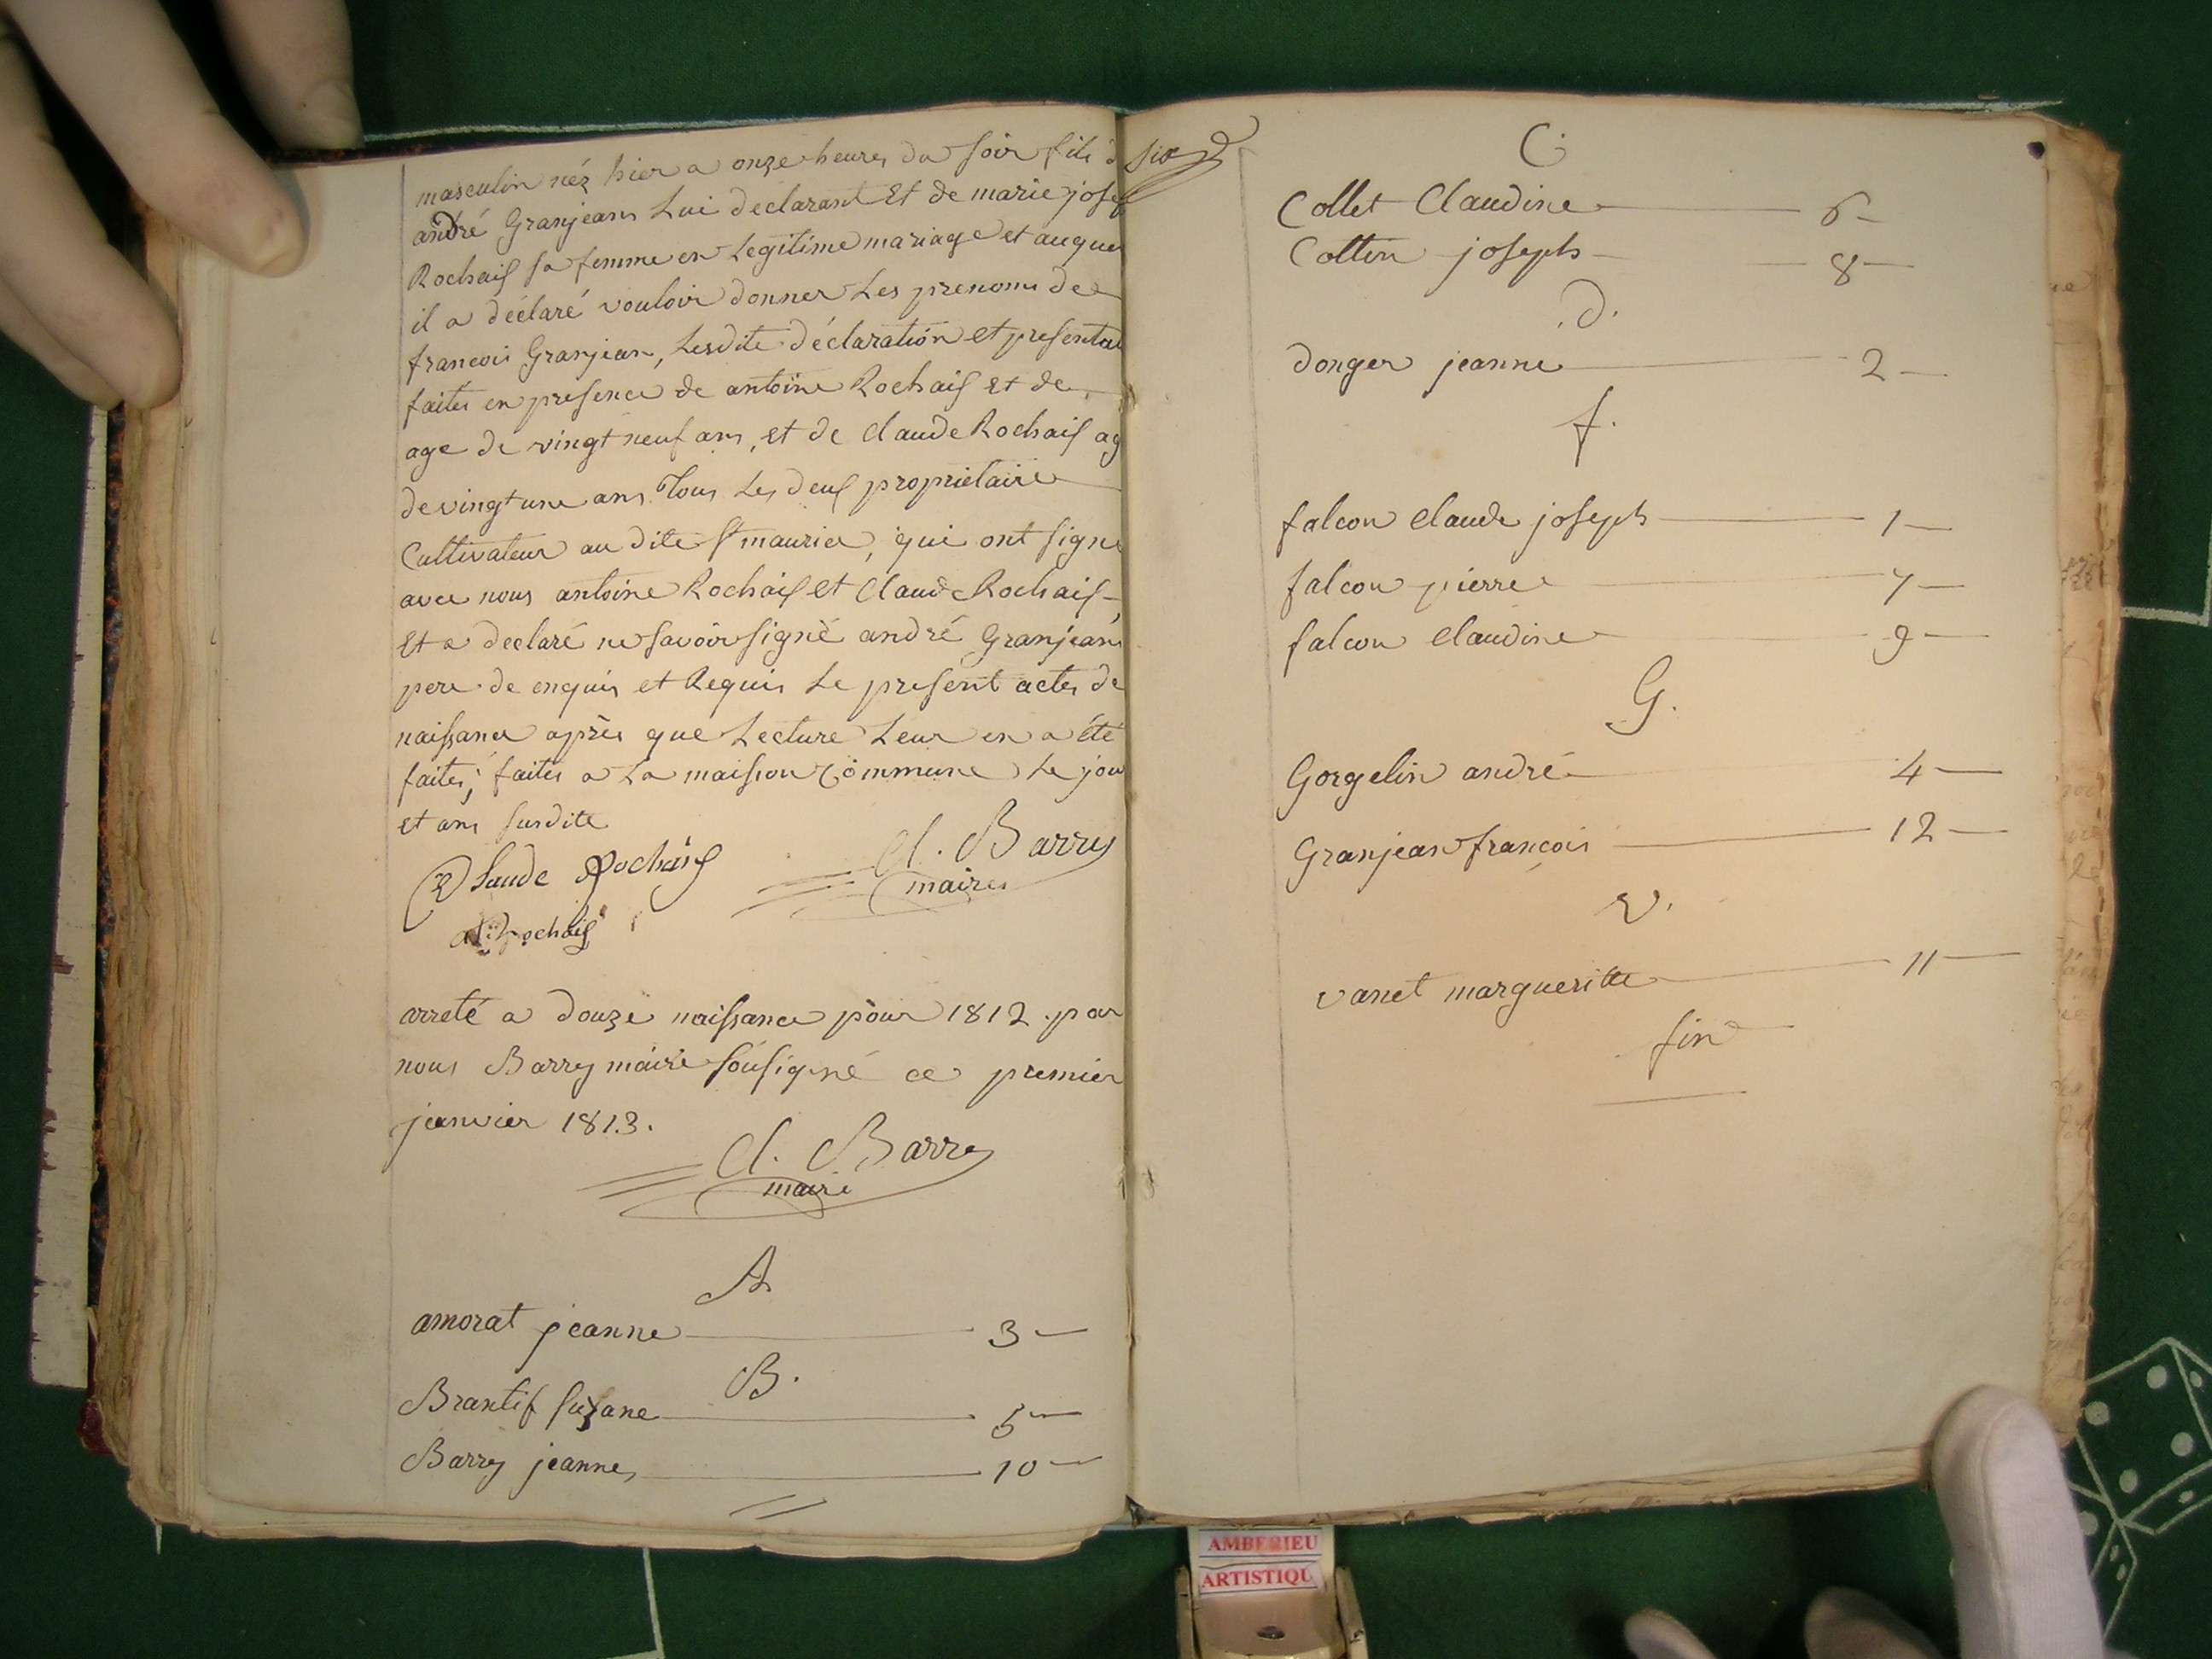 masculin néz hier a onze heures du soir fils d
andré Granjean Lui déclarant Et de marie josep
Rochaif sa femme en Legitime mariage et auquel
il a déclaré vouloir donner Les prenoms de
francois Granjean, Lesdite déclaration et presentat
faites en presence de antoine Rochaif et de
age de vingt neuf ans, et de claude Rochaif ag
de vingt une ans Tous Les deux propriétaire
Cultivateur au dite St maurice, qui ont signé
avec nous antoine Rochaif et Claude Rochaif
Et a declaré ne savoir signé andré Granjean
pere de enquis et Requis Le present actes de
naissance après que Lecture Leur en a été
faites; faites a La maison Commune Le jou
et ans susdite
Cl. Barry
maire
Claude Rochaif
A Rochaif
arreté a douze naissance pour 1812. par
nous Barry maire sousigné ce premier
janvier 1813.
Cl. Barry
maire
A
amorat jeanne 3
B.
Brantif suzane 5
Barry jeanne 10
six
C
Collet Claudine 6
Cottin joseph 8
.D.
donger jeanne 2
f.
falcon claude joseph 1
falcon pierre 7
falcon claudine 9
G.
Gorgelin andré 4
Granjean françois 12
V.
vanet margueritte 11
fin
AMBERIEU
ARTISTIQU